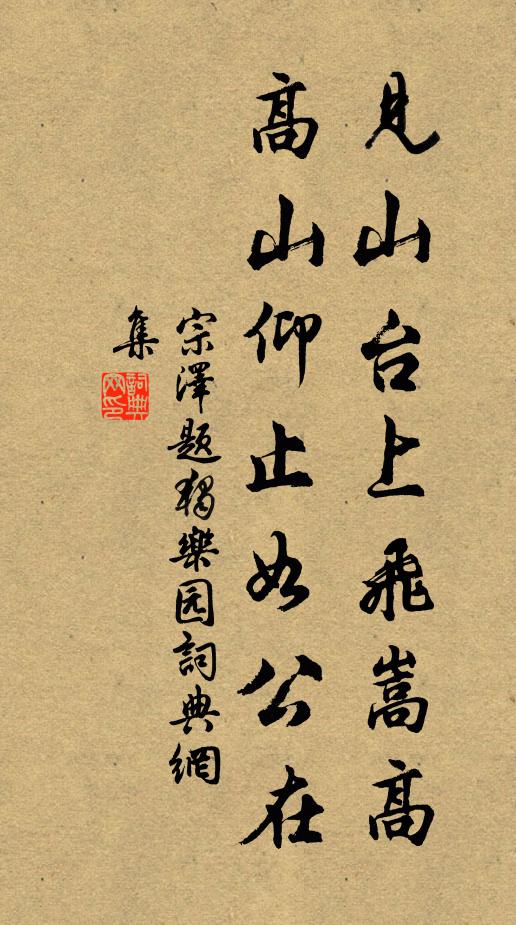 見山台上飛嵩高
高山仰止如公在
宗澤題獨樂园詞典網
集
詞典網印